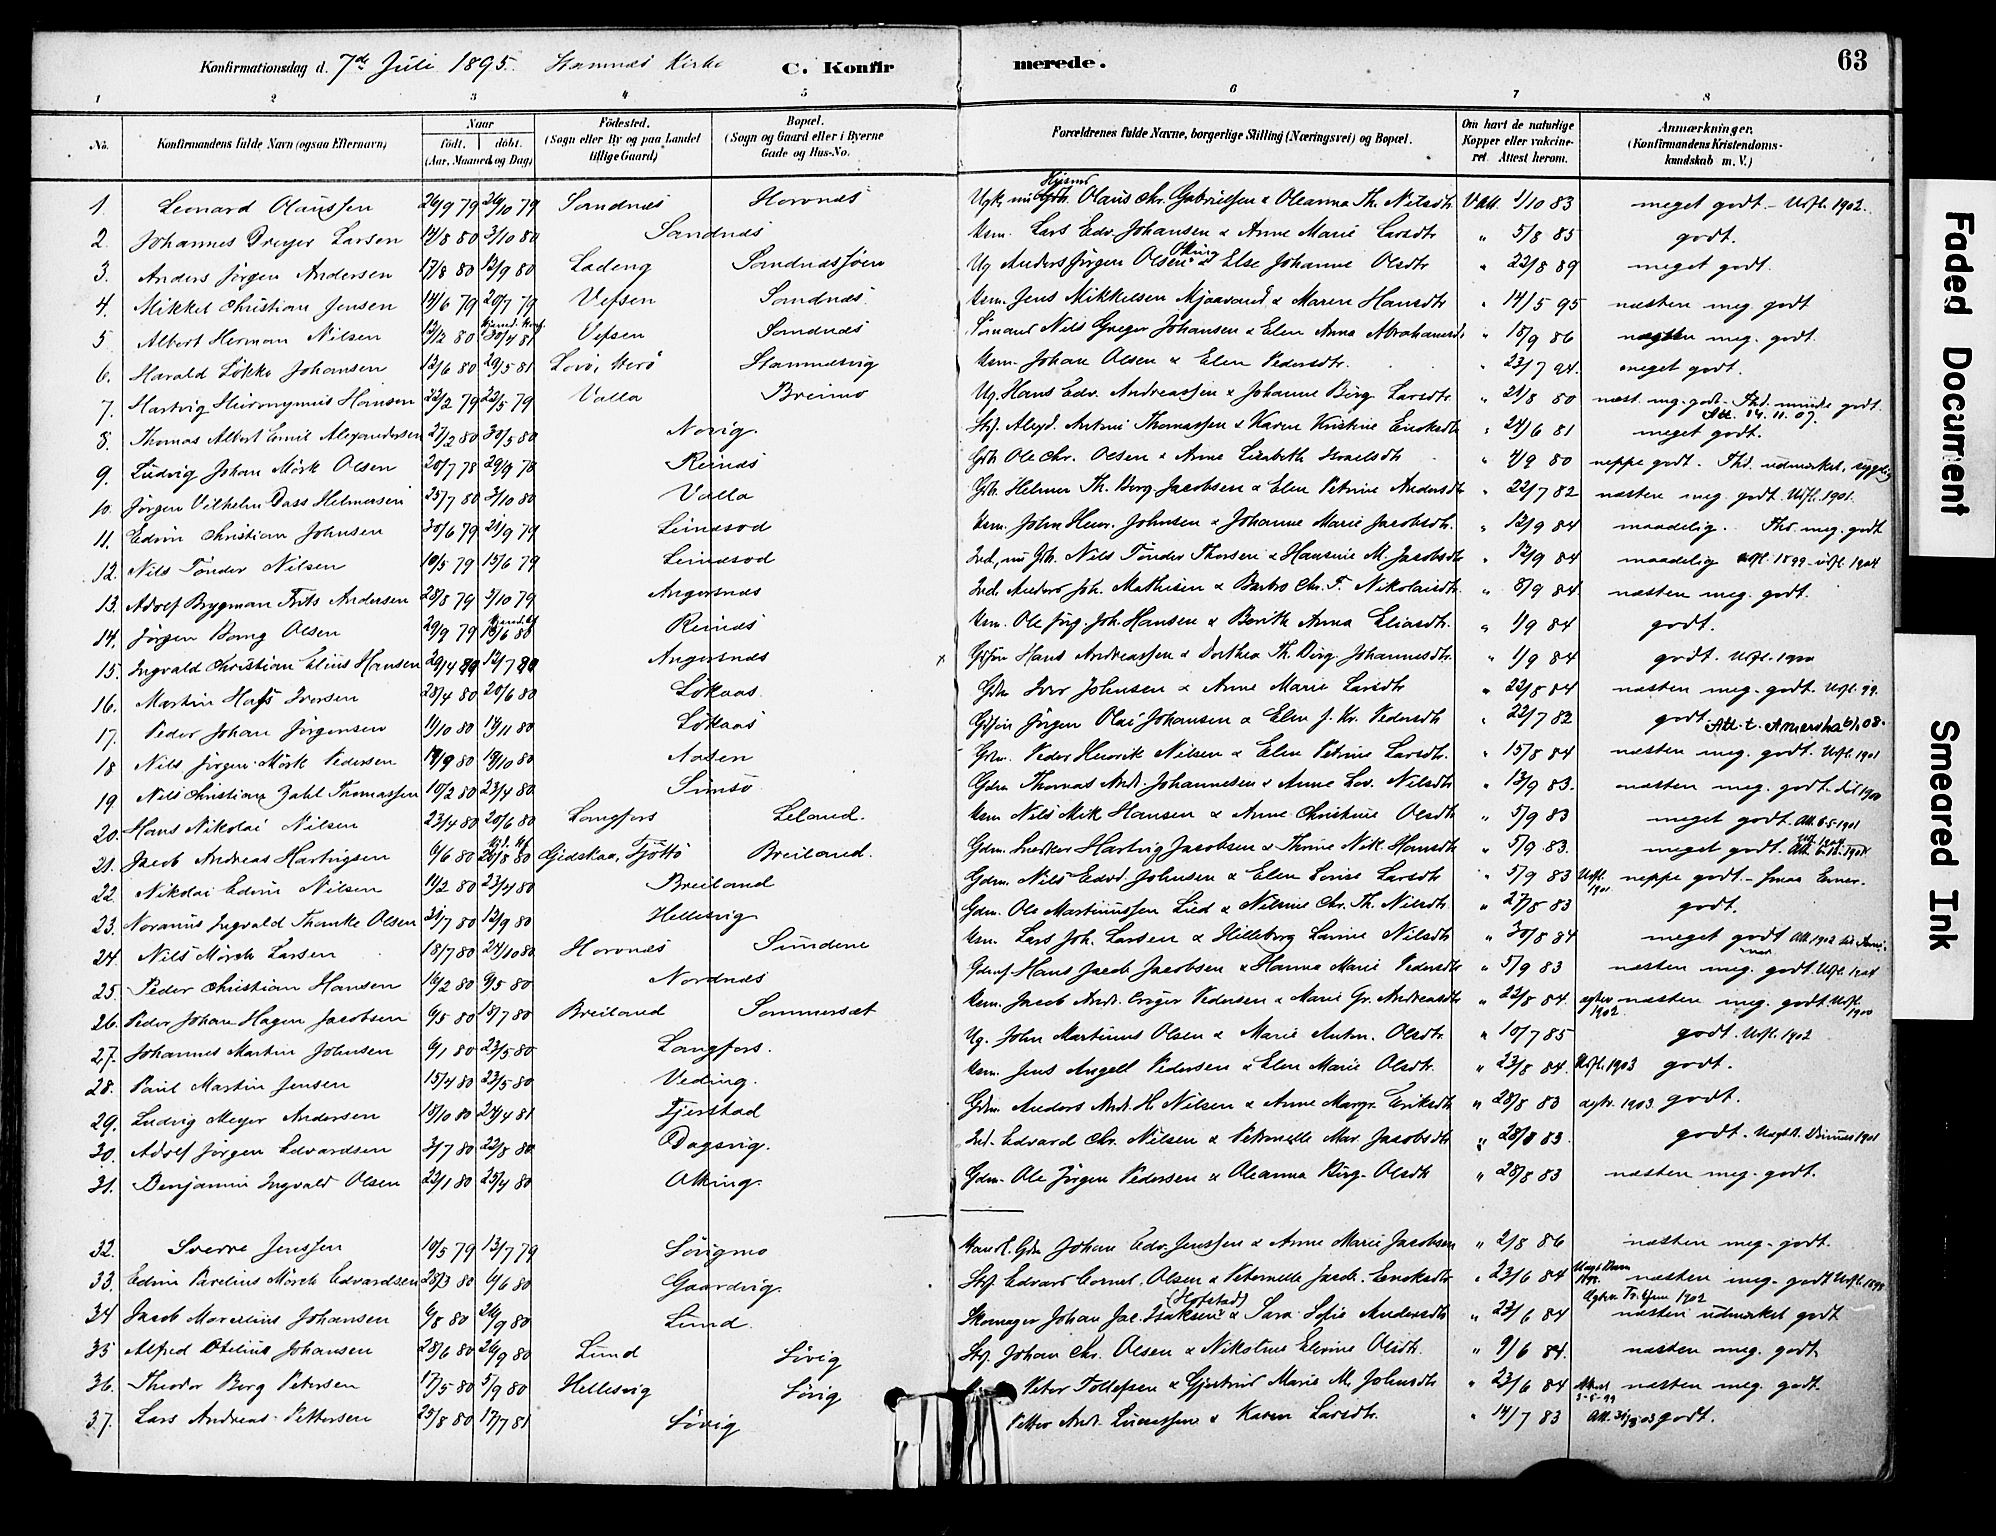 Konfirmationsdag d. 7de Juli 1895. Stamnes Kirke C. Konfirmerede. 63
1 2 3 4 5 6 7 8
No. Konfirmandens fulde Navn (ogsaa Efternavn) Naar født, døbt. (Aar, Maaned og Dag) Fødested. (Sogn eller By og paa Landet tillige Gaard) Bopæl. (Sogn og Gaard eller i Byerne Gade og Hus-No. Forældrenes fulde Navne, borgerlige Stilling (Næringsvei) og Bopæl. Om havt de naturlige Kopper eller vakcineret. Attest herom. Anmærkninger. (Konfirmandens Kristendomskundskab m. V.)
1. Leonard Olaussen 26/9 79 26/10 79 Sandnes Horvnes Olaus Chr. Gabrielsen & Oleanna Th. Nilsdtr. V att. 1/10 83 meget godt - Udfl. 1902.
2. Johannes Dreyer Larsen 14/8 80 3/10 80 Sandnes Lars Edv. Johansen & Anne Marie Larsdtr. " 5/8 85 godt.
3. Anders Jørgen Andersen 17/8 80 12/9 80 Ladeng Sandnessjøen Ug. Anders Jørgen Olsen & Else Johanne Olsdtr " 22/8 89 meget godt.
4. Mikkel Christian Jensen 14/6 79 20/7 79 Vefsen Sandnes Jens Mikkelsen Mjaavand & Maren Hansdtr " 14/5 95 næsten meg. godt
5 Albert Herman Nilsen 12/2 80 30/4 81 Vefsen Sandnes Nils Greger Johansen & Elen Anna Abrahamsd. " 18/9 86 næsten meg. godt.
6. Harald Løkke Johansen 12/6 80 29/5 81 Herø Stamnesvig Johan Olsen & Elen Pedersdtr. " 23/7 94. meget godt.
7. Hartvig Hieronymus Hansen 22/2 79 22/5 79 Valla Breimo Ug. Hans Edv. Andreassen & Johanne Berg Larsdtr. " 21/8 80 næst. mg. godt - Thd. mindre godt.
Att. 14.11.07.
8. Thomas Albert Emil Alexandersen 27/2 80 30/5 80 Novig Alexd. Antoni Thomassen & Karen Kristine Enoksdtr " 24/6 81 meget godt.
9. Ludvig Johan Mørk Olsen 20/7 78 29/9 78 Reines Ole Chr. Olsen & Anne Lisabeth Israelsdtr " 4/9 80 neppe godt. Thd. udmærket, sygelig
10. Jørgen Vilhelm Dass Helmersen 25/7 80 3/10 80 Valla Helmer Th. Berg Jacobsen & Elen Petrine Andersdtr " 22/7 82 næsten meg. godt. Udfl. 1901.
11. Edvin Christian Johnsen 30/6 79 21/9 79 Leinesod John Henr. Johnsen & Johanne Marie Jacobsdtr. " 12/9 84 maadelig. Thd. meg. godt
12. Nils Tønder Nilsen 10/5 79 15/6 79 Leinesod Nils Tønder Thorsen & Hansine M. Jacobsdtr " 12/9 84 maadelig udfl. 1899 - udfl. 1904
13. Adolf Brygman Frits Andersen 28/8 79 3/10 79 Angersnes Ind. Anders Joh. Mathisen & Barbro Chr. F. Nikolaisdtr " 8/9 84 næsten meg. godt.
14. Jørgen Berng Olsen 29/9 79 13/6 80 Reines Ole Jørg. Joh. Hansen & Berith Anna Eliasdtr. " 1/9 84 godt.
15. Ingvald Christian Elius Hansen 29/4 80 12/7 80 Angersnes x Hans Andreassen & Dorthea Th. Berg. Johannesdtr. " 1/9 84 godt. Udfl. 1900
16. Martin Hass Iversen 28/4 80 20/6 80 Løkaas. Iver Johnsen & Anne Marie Larsdtr " 22/8 84 næsten meg. godt. Udfl. 99.
17. Peder Johan Jørgensen 11/10 80 14/11 80 Løkaas Jørgen Olai Johansen & Elen J. Kr. Pedersdtr " 22/7 82 godt. Att. t. Amerika 6/1.08.
18 Nils Jørgen Mørk Pedersen 14/9 80 19/10 80 Aasen Gdm. Peder Henrik Nilsen & Elen Petrine Larsdtr. " 15/8 84 næsten meg. godt. Udfl. 1901
19. Nils Christian Zahl Thomassen 10/2 80 23/4 80 Simsø Thomas Andr. Johannesen & Anne Lov. Nilsdtr " 13/9 83. næsten meg. godt. 1900
20. Hans Nikolai Nilsen 23/4 80 20/6 80 Langfors Leland. Nils Mik Hansen & Anne Christine Olsdtr " 5/9 83 meget godt. Att. 6-5-1901
21. Jacob Andreas Hartvigsen 6/6 80 20/8 80 Gidskaa, Tjøttø Breiland. Gdm. Hartvig Jacobsen & Thrine Nik. Hansdtr " 5/9 83. meget godt.
22. Nikolai Edvin Nilsen 11/2 80 23/4 80 Breiland Gdm. Nils Edvd. Johnsen & Elen Lovise Larsdtr " 5/9 83 Udfl. 1901 neppe godt. - smaa Evner.
23. Noranus Ingvald Thanke Olsen 31/7 80 12/9 80 Hellesvig Gdm. Ole Martinussen Lied & Nilsine Chr. Th. Nilsdtr. " 27/8 83 godt.
24. Nils Mørch Larsen 18/7 80 24/10 80 Horvnes Sundene Lars Joh. Larsen & Hilleborg Larine Nilsdtr " 30/8 84 meget godt Att. 1902
25. Peder Christian Hansen 16/2 80 9/5 80 Nordnes Hans Jacob Jacobsen & Hanna Marie Pedersdtr " 5/9 83 næsten meg. godt. Udfl. 1904
26. Peder Johan Hagen Jacobsen 9/5 80 18/7 80 Breiland Sommerset Jacob Andr. Crøger Pedersen & Marie Gr. Andreasdtr " 22/8 84. 1902. næsten meg. godt. Udfl. 1900
27. Johannes Martin Johnsen 6/1 80 23/5 80 Langfors. Ug. John Martinus Olsen & Marie Anton. Olsdtr. " 10/7 85 godt. Udfl. 1902
28. Paul Martin Jensen 15/4 80 23/5 80 Veding. Jens Angell Pedersen & Elen Marie Olsdtr. " 23/8 84. Udfl. 1903 godt.
29. Ludvig Meyer Andersen 18/10 80 24/4 81 Tjerstad Gdm. Anders Andr. H. Nilsen & Anne Margr. Eriksdtr " 28/8 83 1903. godt.
30. Adolf Jørgen Edvardsen 3/7 80 22/8 80 Dagsvig. Ind. Edvard Chr. Nilsen & Petronelle Mar. Jacobsdtr " 28/8 83. godt. 1901
31. Benjamin Ingvald Olsen 22/1 80 25/4 80 Alking. Gdm. Ole Jørgen Pedersen & Oleanna Birg. Olsdtr " 28/8 83 næsten meg. godt.
32. Sverre Jenssen 10/5 79 13/7 79 Søvigmo Johan Edv. Jenssen & Anne Marie Jacobsen " 2/8 86 næsten meg. godt.
33. Edvin Parelius Mørch Edvardsen 28/3 80 6/6 80 Gaardvig. Edvard Cornel. Olsen & Peternelle Jacob. Enoksdtr. " 23/6 84 næsten meg. godt Udfl. 1898
34 Jacob Marselius Johansen 6/8 80 26/9 80 Lund. Skomager Johan Jac. Isaksen (Hofstad) & Sara Sofie Andersdtr " 23/6 84 1902 næsten udmærket godt
35 Alfred Otelius Johansen 28/6 80 26/9 80 Lund Søvig Johan Chr. Olsen & Nikoline Elerine Olsdtr. " 9/6 84. næsten meg. godt
36. Theodor Berg Petersen 17/5 80 5/9 80 Hellesvig Søvig Peter Tollefsen & Gjertrud Marie M. Johnsdtr " 23/6 84 3-5-99 næsten meg. godt
37. Lars Andreas Pettersen 25/8 80 17/7 81 Søvig Petter Andr. Lucassen & Karen Larsdtr. " 14/7 83 Att. godt.
Faded Document
Smeared Ink